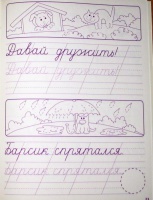 Давай дружить!
Давай дружить!
Барсик спрятался
Барсик спрятался